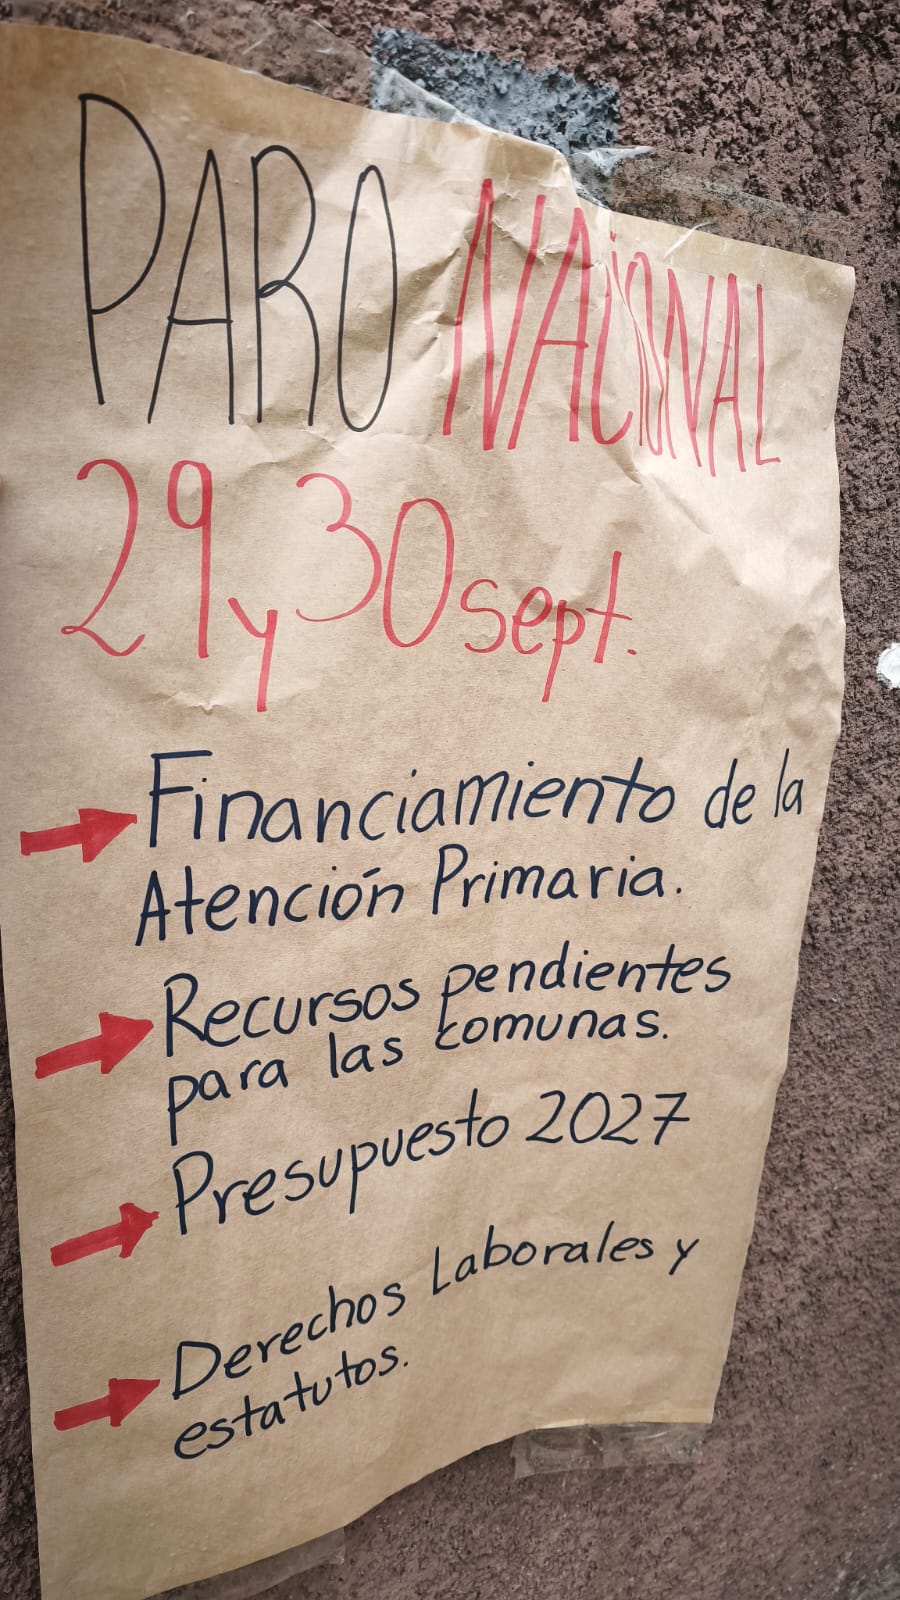 PARO NACIONAL
29 y 30 sept.
Financiamiento de la
Atención Primaria.
Recursos pendientes
para las comunas.
Presupuesto 2027
Derechos Laborales y
estatutos.